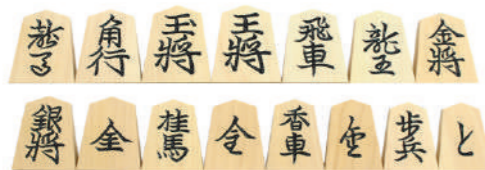 龍馬 角行 玉將 王將 飛車 龍王 金將
銀將 全 桂馬 今 香車 杏 歩兵 と